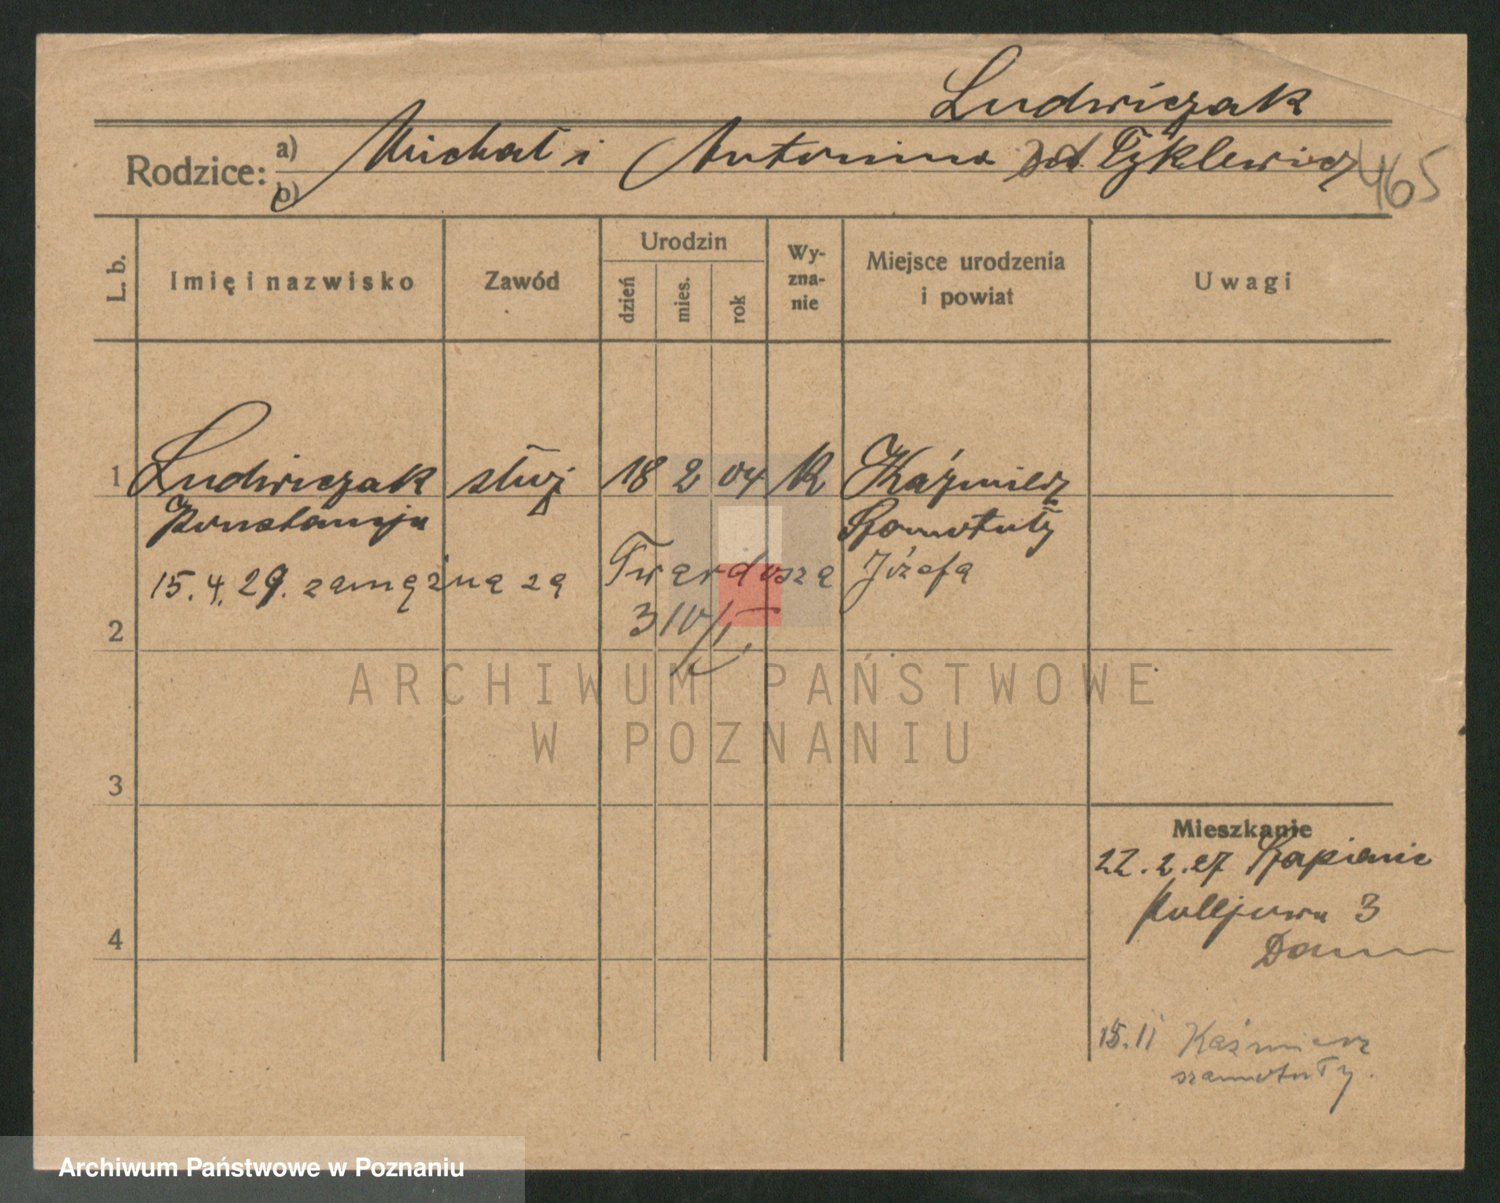 Ludwiczak
Rodzice: a) Michał i Antonina zd Tyklewicz 465
b)
L. b. Imię i nazwisko Zawód Urodzin dzień mies. rok Wy-zna-nie Miejsce urodzenia i powiat Uwagi
1 Ludwiczak służ 18 2 04 R Kaźmierz
Konstancja Szamotuły
15.4.29. zamężna za Twardosza Józefa
2
3
4
Mieszkanie
22.2.27
3
15.II Kaźmierz
szamotuły.
ARCHIWUM PAŃSTWOWE
W POZNANIU
Archiwum Państwowe w Poznaniu